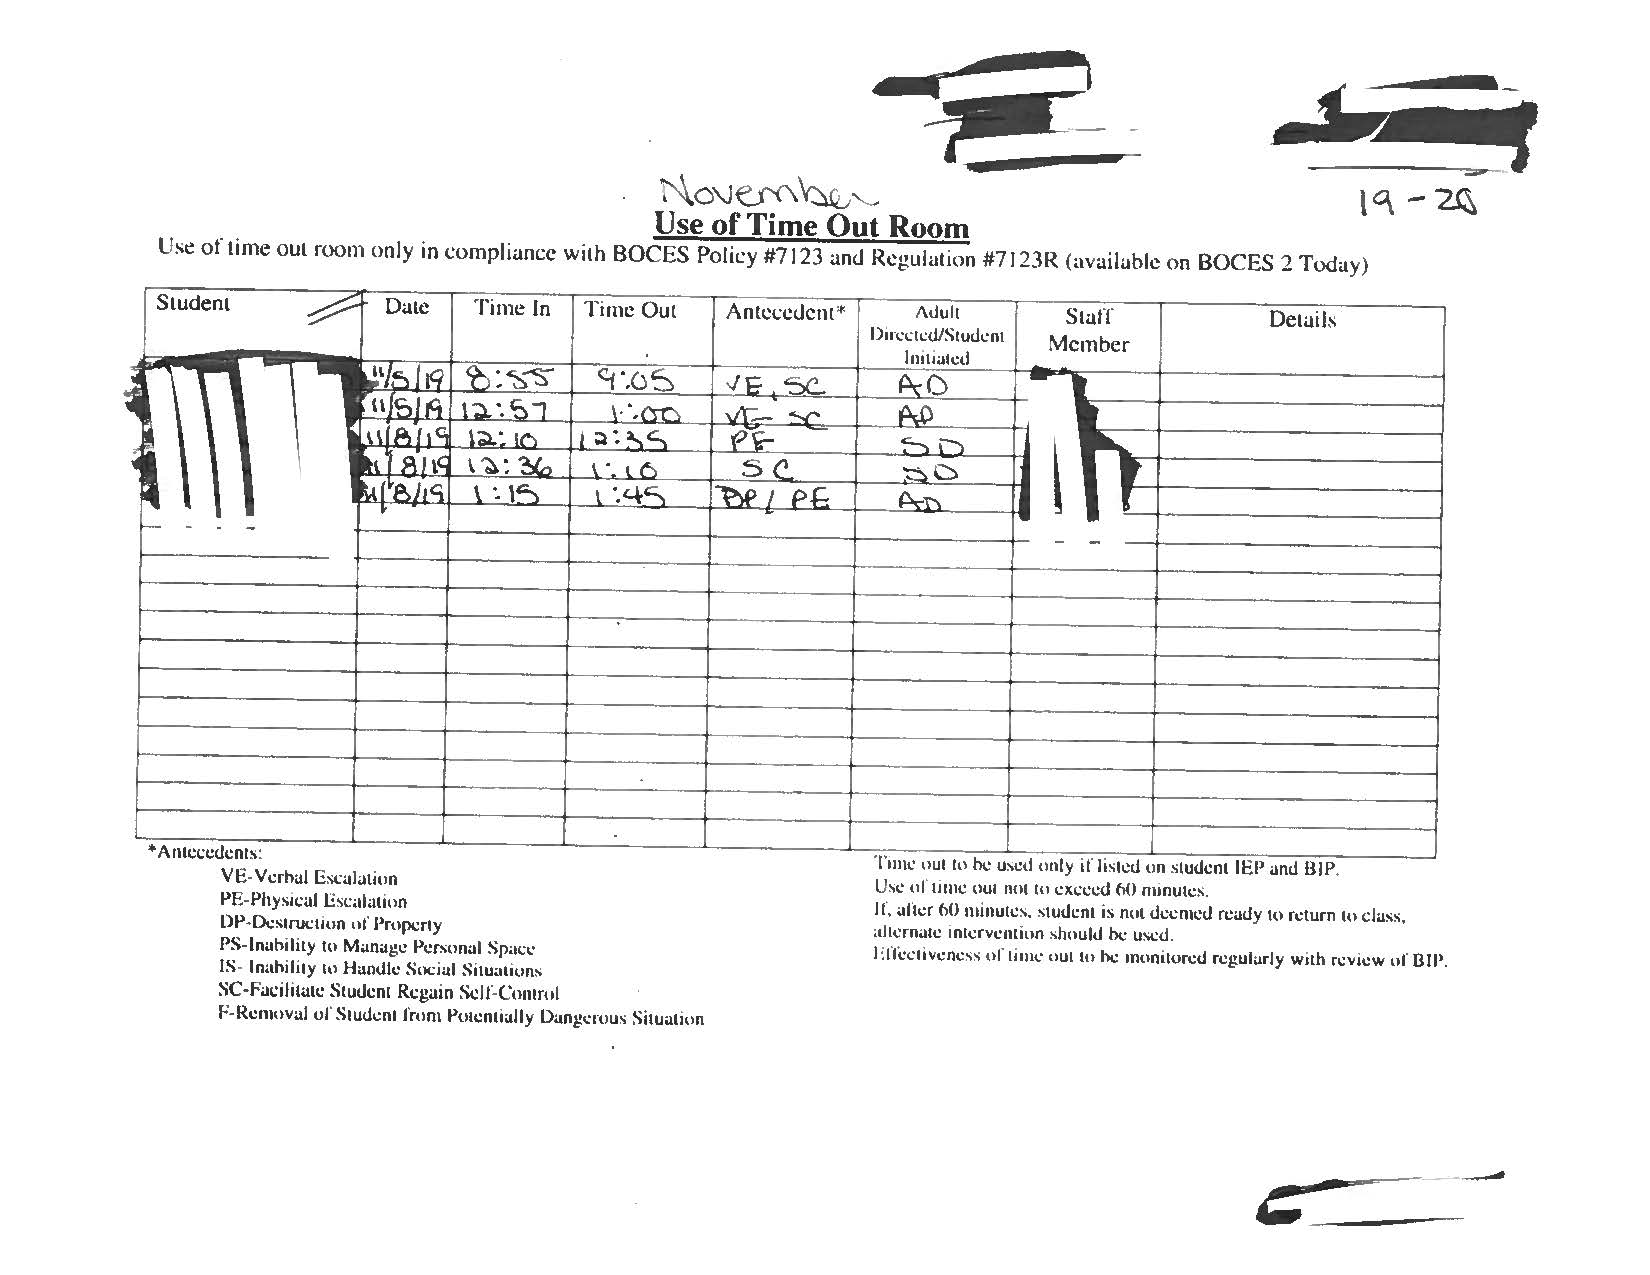 November
19-20
Use of Time Out Room
Use of time out room only in compliance with BOCES Policy #7123 and Regulation #7123R (available on BOCES 2 Today)
Student Date Time In Time Out Antecedent* Adult Directed/Student Initiated Staff Member Details
11/5/19 8:55 9:05 VE, SC AD
11/5/19 12:57 1:00 VE SC AD
11/8/19 12:10 12:35 PE SD
11/8/19 12:36 1:10 SC SD
11/8/19 1:15 1:45 DP/ PE AD
*Antecedents:
VE-Verbal Escalation
PE-Physical Escalation
DP-Destruction of Property
PS-Inability to Manage Personal Space
IS- Inability to Handle Social Situations
SC-Facilitate Student Regain Self-Control
F-Removal of Student from Potentially Dangerous Situation
Time out to be used only if listed on student IEP and BIP.
Use of time out not to exceed 60 minutes.
If, after 60 minutes, student is not deemed ready to return to class,
alternate intervention should be used.
Effectiveness of time out to be monitored regularly with review of BIP.